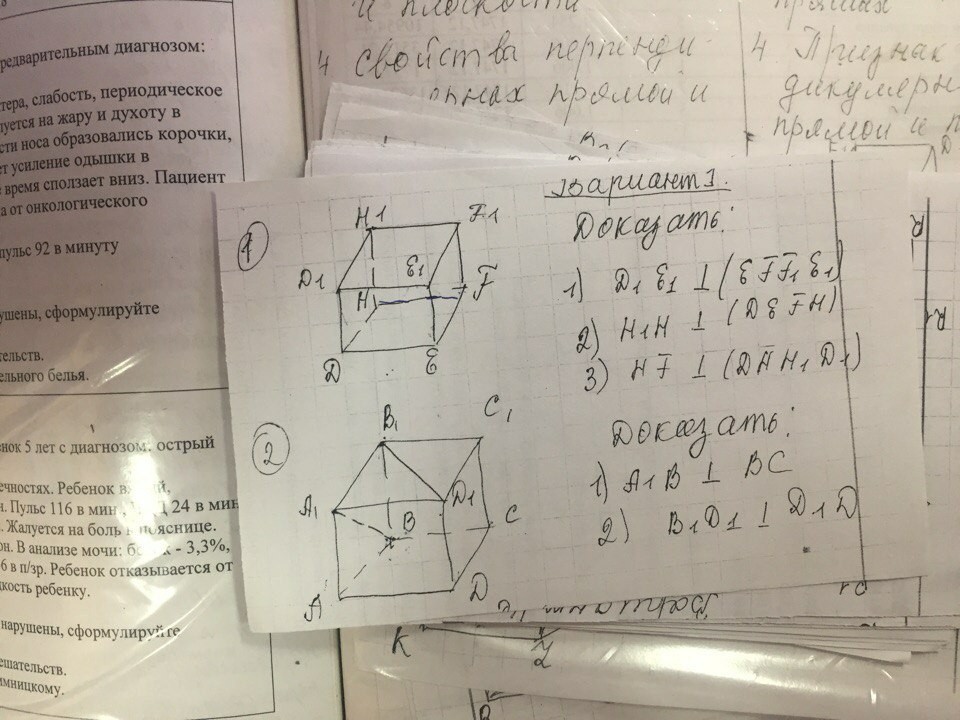 редварительным диагнозом:
тера, слабость, периодическое
луется на жару и духоту в
сти носа образовались корочки,
ет усиление одышки в
время сползает вниз. Пациент
а от онкологического
пульс 92 в минуту
ушены, сформулируйте
тельств.
бельного белья.
нок 5 лет с диагнозом: острый
ечностях. Ребенок в
н. Пульс 116 в мин 24 в мин
. Жалуется на боль пояснице.
он. В анализе мочи: - 3,3%,
6 в п/зр. Ребенок отказывается от
дкость ребенку.
нарушены, сформулируйте
ешательств.
имницкому.
и плоскости
4 Свойства перпенди
прямой и
прямых
4 Признак
дикулярн
прямой и п
Вариант 1.
1
H1
F1
D1
E1
H
F
D
E
Доказать:
1) D1 E1 ⊥ (E F F1 E1)
2) H1H ⊥ (D E F H)
3) HF ⊥ (D H H1 D1)
2
B1
C1
A1
D1
B
C
A
D
Доказать:
1) A1B ⊥ BC
2) B1D1 ⊥ D1D
K